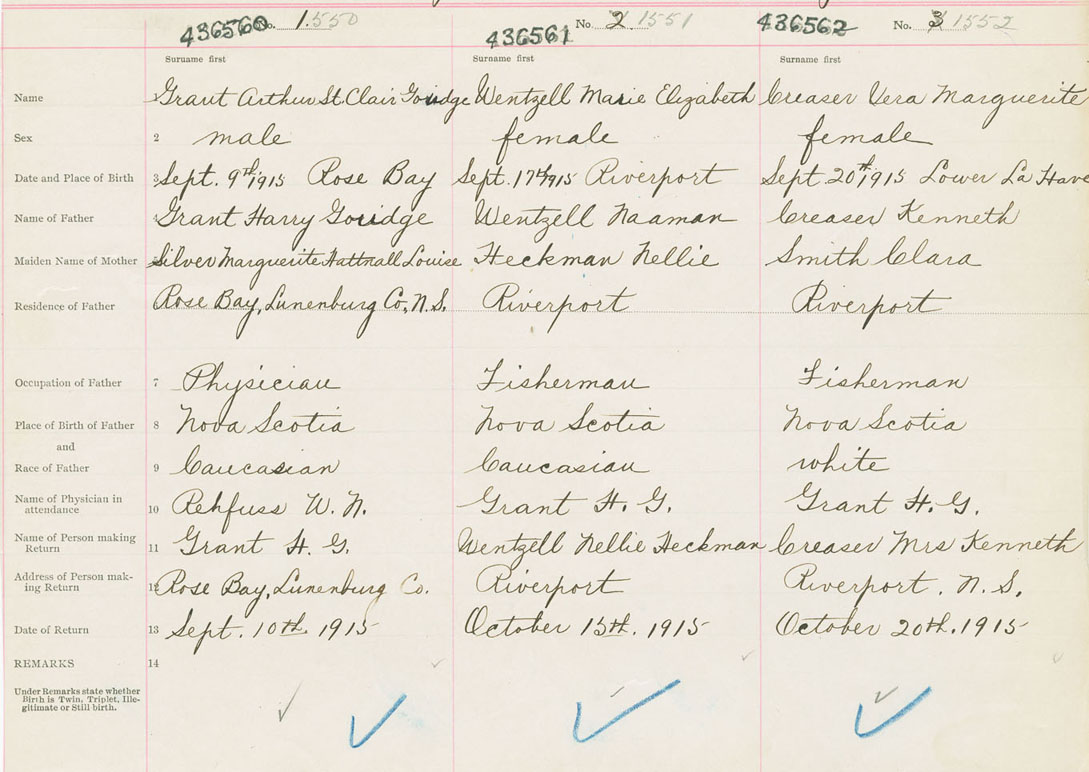 436560 No. 1. 1550 436561 No. 2 1551 436562 No. 3 1552
Surname first Surname first Surname first
Name 1 Grant Arthur St. Clair Goridge Wentzell Marie Elizabeth Creaser Vera Marguerite
Sex 2 male female female
Date and Place of Birth 3 Sept. 9th 1915 Rose Bay Sept. 17th 1915 Riverport Sept. 20th, 1915 Lower La Have
Name of Father 4 Grant Harry Goridge Wentzell Naaman Creaser Kenneth
Maiden Name of Mother 5 Silver Marguerite Hattnall Louise Heckman Nellie Smith Clara
Residence of Father Rose Bay, Lunenburg Co, N.S. Riverport Riverport
Occupation of Father 7 Physician Fisherman Fisherman
Place of Birth of Father 8 Nova Scotia Nova Scotia Nova Scotia
and
Race of Father 9 Caucasian Caucasian white
Name of Physician in
attendance 10 Rehfuss W. N. Grant H. G. Grant H. G.
Name of Person making
Return 11 Grant H. G. Wentzell Nellie Heckman Creaser Mrs Kenneth
Address of Person mak-
ing Return 12 Rose Bay, Lunenburg Co. Riverport Riverport. N. S.
Date of Return 13 Sept. 10th. 1915 October 15th. 1915 October 20th. 1915
REMARKS 14
Under Remarks state whether
Birth is Twin, Triplet, Ille-
gitimate or Still birth.